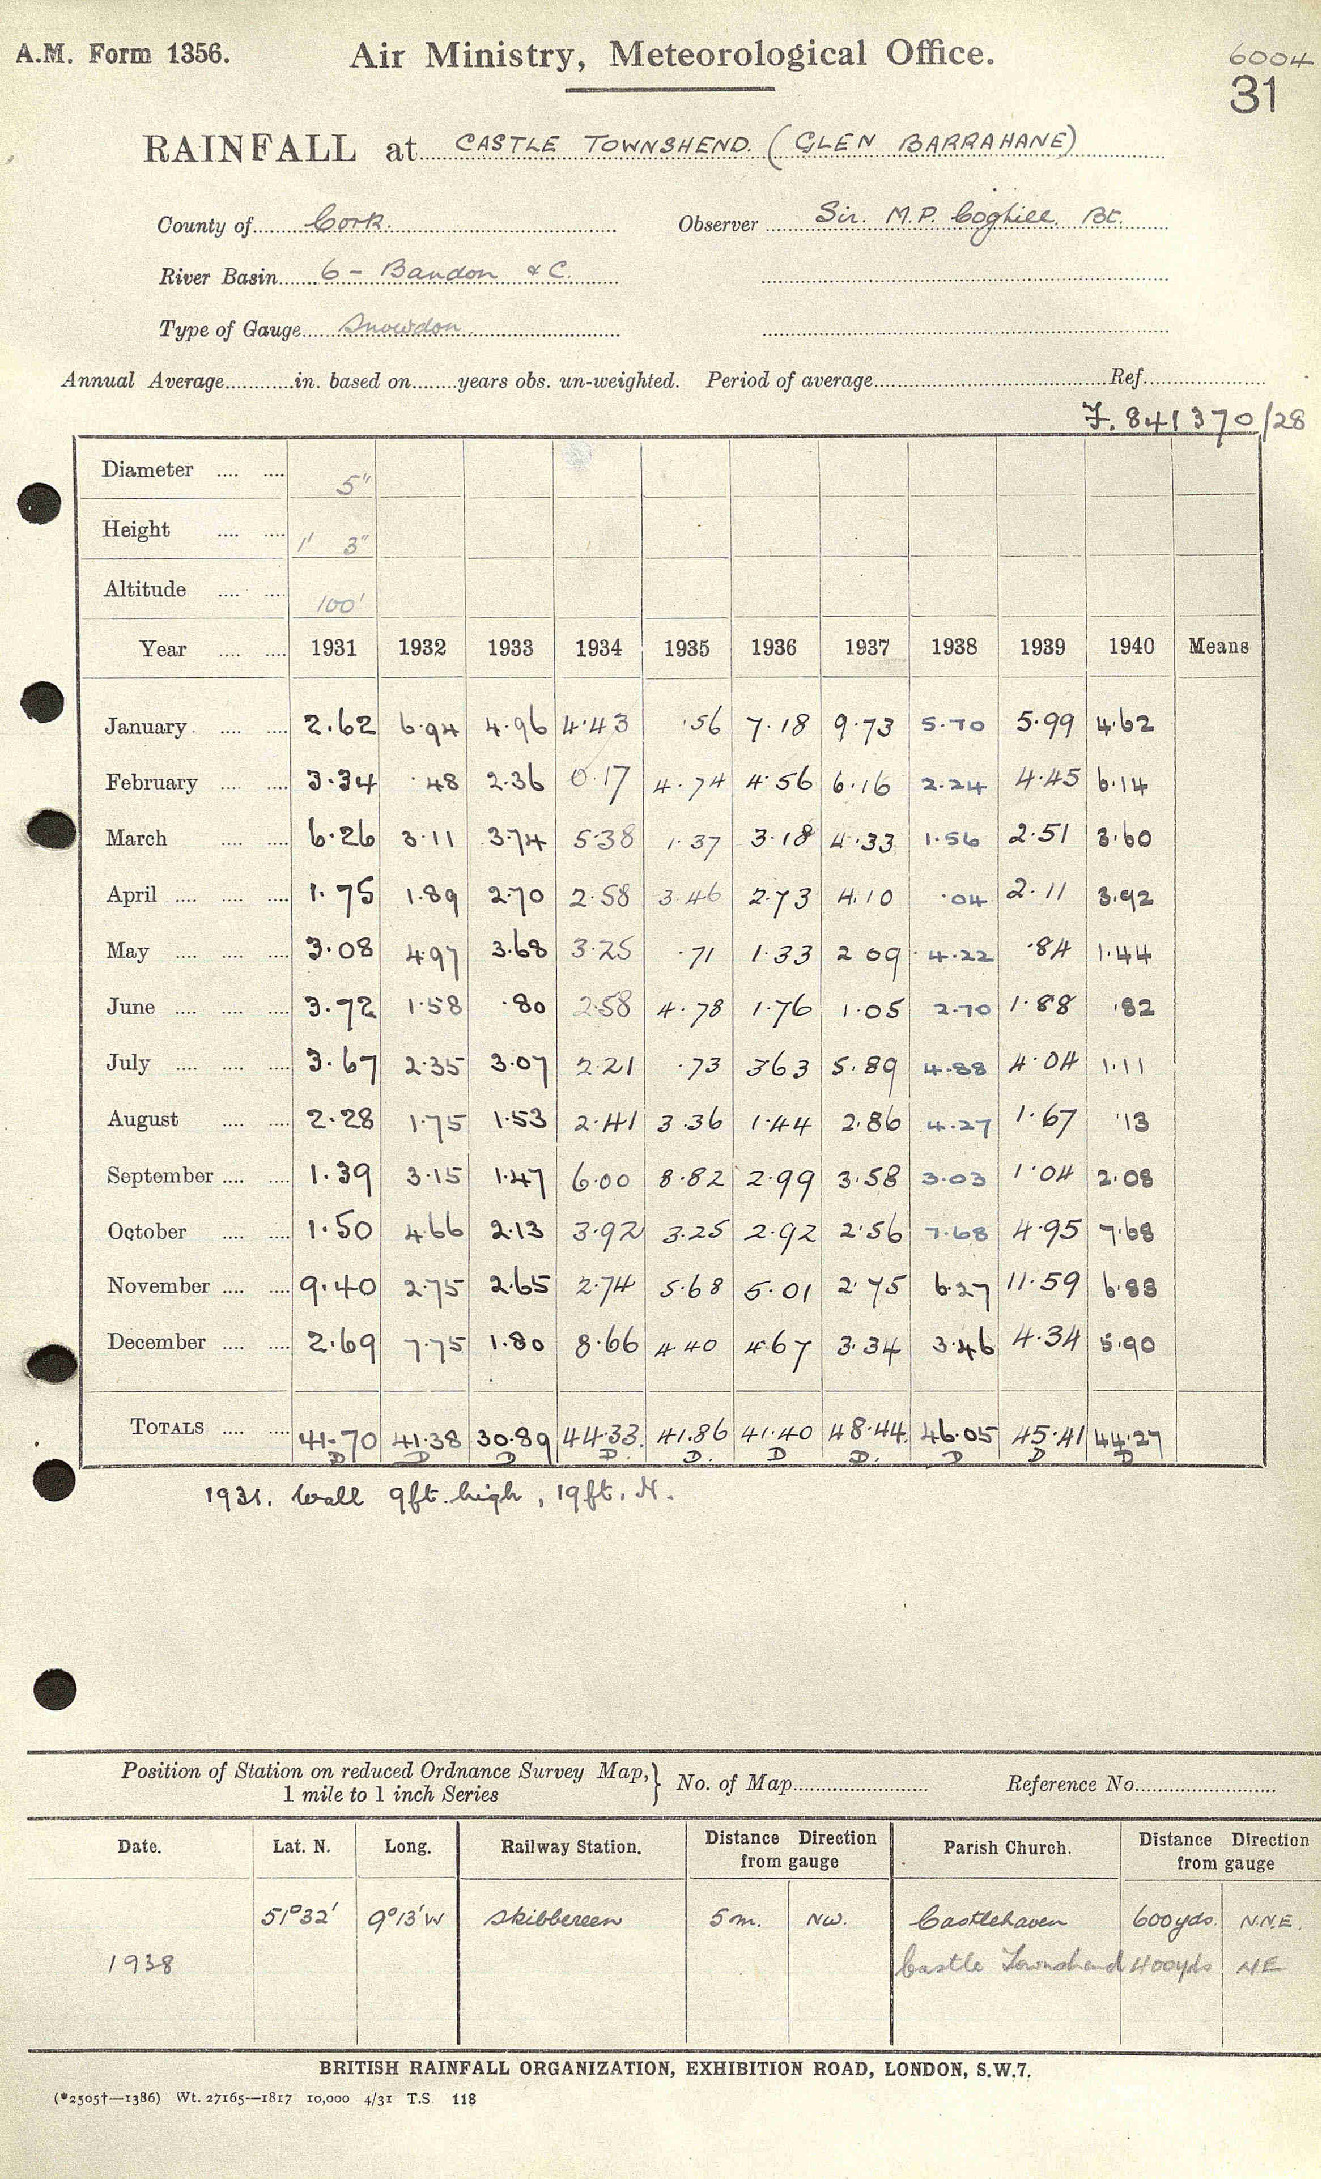 A.M. Form 1356.
Air Ministry, Meteorological Office.
6004
31
RAINFALL at CASTLE TOWNSHEND. (GLEN BARRAHANE)
County of Cork. Observer Sir. M.P. Coghill. Bt.
River Basin 6 - Bandon & C.
Type of Gauge Snowdon
Annual Average in. based on years obs. un-weighted. Period of average Ref.
F. 841370/28
Diameter 5"
Height 1' 3"
Altitude 100'
Year 1931 1932 1933 1934 1935 1936 1937 1938 1939 1940 Means
January 2.62 6.94 4.96 4.43 .56 7.18 9.73 5.70 5.99 4.62
February 3.34 .48 2.36 0.17 4.74 4.56 6.16 2.24 4.45 6.14
March 6.26 3.11 3.74 5.38 1.37 3.18 4.33 1.56 2.51 3.60
April 1.75 1.89 2.70 2.58 3.46 2.73 4.10 .04 2.11 3.92
May 3.08 4.97 3.68 3.25 .71 1.33 2 09 4.22 .84 1.44
June 3.72 1.58 .80 2.58 4.78 1.76 1.05 2.70 1.88 .82
July 3.67 2.35 3.07 2.21 .73 363 5.89 4.88 4.04 1.11
August 2.28 1.75 1.53 2.41 3.36 1.44 2.86 4.27 1.67 .13
September 1.39 3.15 1.47 6.00 8.82 2.99 3.58 3.03 1.04 2.08
October 1.50 4.66 2.13 3.92 3.25 2.92 2.56 7.68 4.95 7.68
November 9.40 2.75 2.65 2.74 5.68 5.01 2.75 6.27 11.59 6.83
December 2.69 7.75 1.80 8.66 4 40 4.67 3.34 3.46 4.34 5.90
TOTALS 41.70 41.38 30.89 44.33 41.86 41.40 48.44 46.05 45.41 44.27
D D D D. D. D D. D D D
1931. Wall 9ft. high, 19ft. N.
Position of Station on reduced Ordnance Survey Map,
1 mile to 1 inch Series
No. of Map Reference No.
Date. Lat. N. Long. Railway Station. Distance Direction from gauge Parish Church. Distance Direction from gauge
51°32' 9°13'W Skibbereen 5m. NW. Castlehaven 600yds. N.N.E.
1938 Castle Townshend 400yds NE
BRITISH RAINFALL ORGANIZATION, EXHIBITION ROAD, LONDON, S.W.7.
(*2505†—1386) Wt. 27165—1817 10,000 4/31 T.S 118